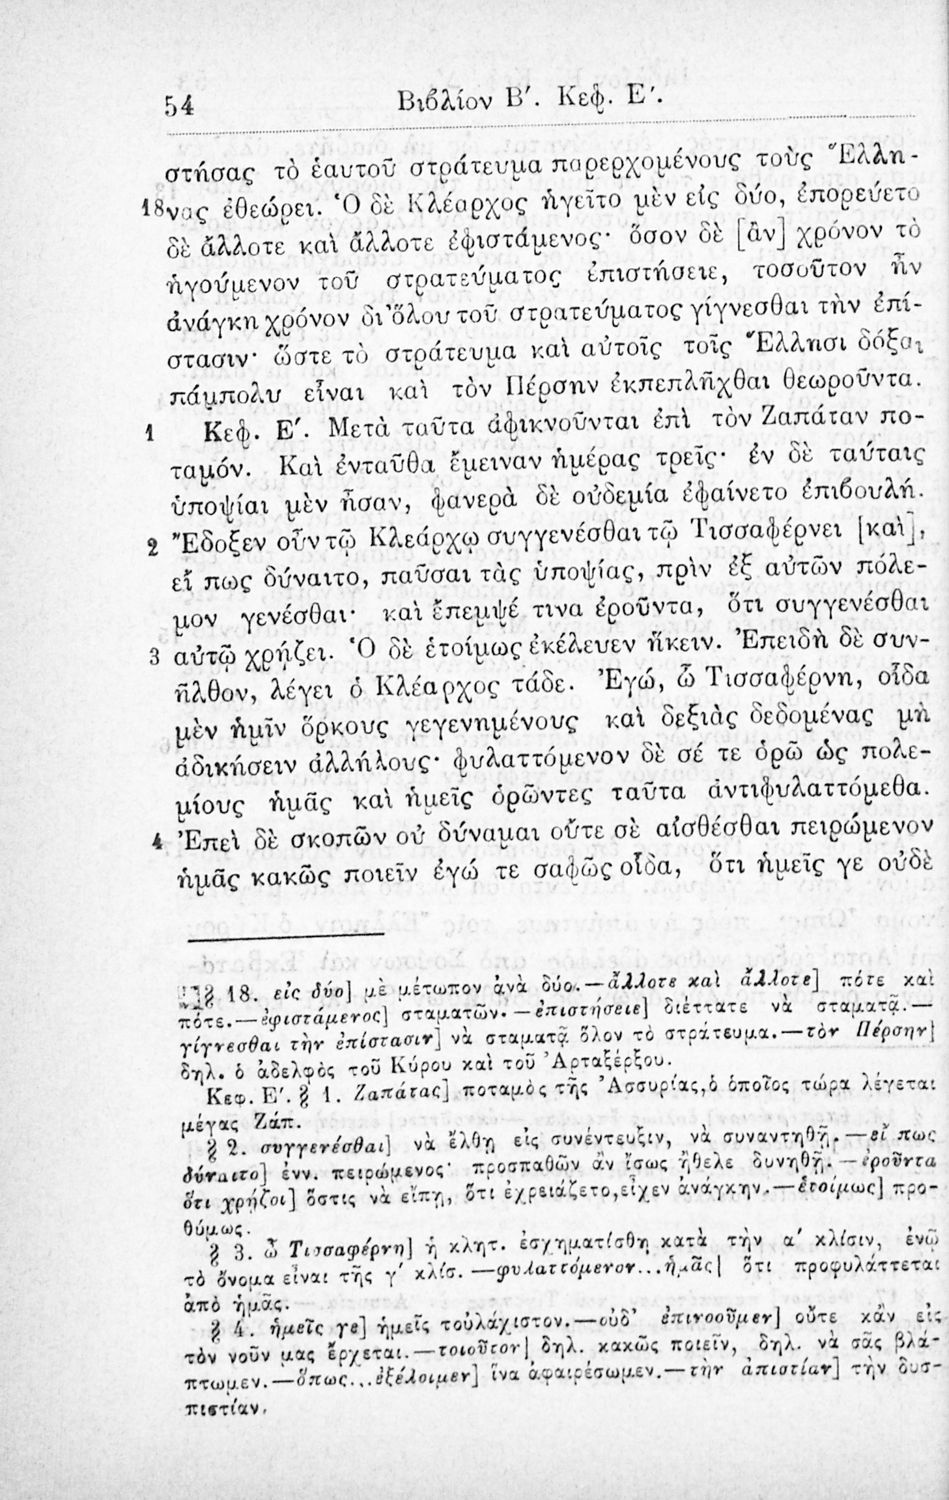 54
Βιβλίον Β΄. Κεφ. Ε΄.
στήσας τὸ ἑαυτοῦ στράτευμα παρερχομένους τοὺς Ἕλλη-
18 νας ἐθεώρει. Ὁ δὲ Κλέαρχος ἡγεῖτο μὲν εἰς δύο, ἐπορεύετο
δὲ ἄλλοτε καὶ ἄλλοτε ἐφιστάμενος· ὅσον δὲ [ἂν] χρόνον τὸ
ἡγούμενον τοῦ στρατεύματος ἐπιστήσειε, τοσοῦτον ἦν
ἀνάγκη χρόνον δι᾿ ὅλου τοῦ στρατεύματος γίγνεσθαι τὴν ἐπί-
στασιν· ὥστε τὸ στράτευμα καὶ αὐτοῖς τοῖς Ἕλλησι δόξαι
πάμπολυ εἶναι καὶ τὸν Πέρσην ἐκπεπλῆχθαι θεωροῦντα.
1 Κεφ. Ε΄. Μετὰ ταῦτα ἀφικνοῦνται ἐπὶ τὸν Ζαπάταν πο-
ταμόν. Καὶ ἐνταῦθα ἔμειναν ἡμέρας τρεῖς· ἐν δὲ ταύταις
ὑποψίαι μὲν ἦσαν, φανερὰ δὲ οὐδεμία ἐφαίνετο ἐπιβουλή.
2 Ἔδοξεν οὖν τῷ Κλεάρχῳ συγγενέσθαι τῷ Τισσαφέρνει [καὶ],
εἴ πως δύναιτο, παῦσαι τὰς ὑποψίας, πρὶν ἐξ αὐτῶν πόλε-
μον γενέσθαι· καὶ ἔπεμψέ τινα ἐροῦντα, ὅτι συγγενέσθαι
3 αὐτῷ χρῄζει. Ὁ δὲ ἑτοίμως ἐκέλευεν ἥκειν. Ἐπειδὴ δὲ συν-
ῆλθον, λέγει ὁ Κλέαρχος τάδε. Ἐγώ, ὦ Τισσαφέρνη, οἶδα
μὲν ἡμῖν ὅρκους γεγενημένους καὶ δεξιὰς δεδομένας μὴ
ἀδικήσειν ἀλλήλους· φυλαττόμενον δὲ σέ τε ὁρῶ ὡς πολε-
μίους ἡμᾶς καὶ ἡμεῖς ὁρῶντες ταῦτα ἀντιφυλαττόμεθα.
4 Ἐπεὶ δὲ σκοπῶν οὐ δύναμαι οὔτε σὲ αἰσθέσθαι πειρώμενον
ἡμᾶς κακῶς ποιεῖν ἐγώ τε σαφῶς οἶδα, ὅτι ἡμεῖς γε οὐδὲ
§ 18. εἰς δύο] μὲ μέτωπον ἀνὰ δύο.—ἄλλοτε καὶ ἄλλοτε] πότε καὶ
πότε.—ἐφιστάμενος] σταματῶν.—ἐπιστήσειε] διέττατε νὰ σταματᾷ.—
γίγνεσθαι τὴν ἐπίστασιν] νὰ σταματᾷ ὅλον τὸ στράτευμα.—τὸν Πέρσην]
δηλ. ὁ ἀδελφὸς τοῦ Κύρου καὶ τοῦ Ἀρταξέρξου.
Κεφ. Ε΄. § 1. Ζαπάτας] ποταμὸς τῆς Ἀσσυρίας, ὁ ὁποῖος τώρα λέγεται
μέγας Ζάπ.
§ 2. συγγενέσθαι] νὰ ἔλθῃ εἰς συνέντευξιν, νὰ συναντηθῇ.—εἴ πως
δύναιτο] ἐνν. πειρώμενος· προσπαθῶν ἂν ἴσως ἤθελε δυνηθῇ.—ἐροῦντα
ὅτι χρῄζοι] ὅστις νὰ εἴπῃ, ὅτι ἐχρειάζετο, εἶχεν ἀνάγκην.—ἑτοίμως] προ-
θύμως.
§ 3. ὦ Τισσαφέρνη] ἡ κλητ. ἐσχηματίσθη κατὰ τὴν α΄ κλίσιν, ἐνῷ
τὸ ὄνομα εἶναι τῆς γ΄ κλίσ.—φυλαττόμενον...ἡμᾶς] ὅτι προφυλάττεται
ἀπὸ ἡμᾶς.
§ 4. ἡμεῖς γε] ἡμεῖς τοὐλάχιστον.—οὐδ᾿ ἐπινοοῦμεν] οὔτε κἂν εἰς
τὸν νοῦν μας ἔρχεται.—τοιοῦτον] δηλ. κακῶς ποιεῖν, δηλ. νὰ σᾶς βλά-
πτωμεν.—ὅπως...ἐξέλοιμεν] ἵνα ἀφαιρέσωμεν.—τὴν ἀπιστίαν] τὴν δυσ-
πιστίαν.